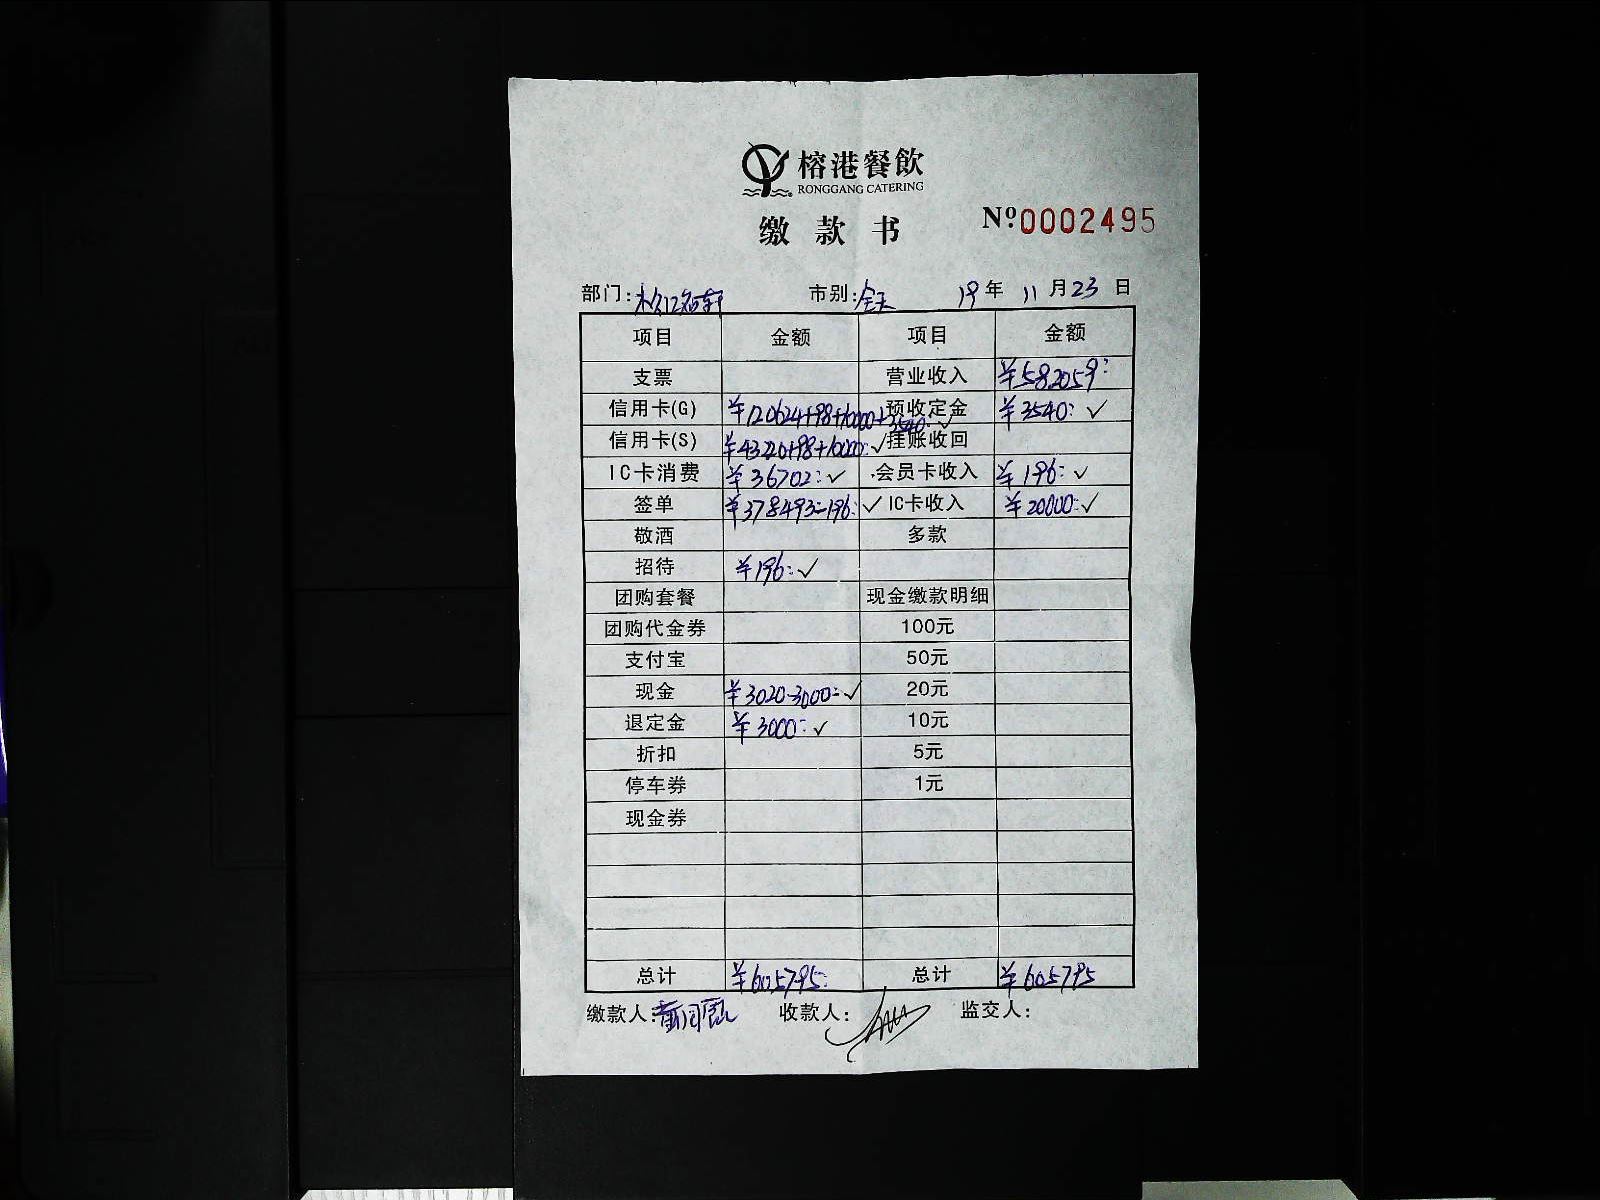 榕港餐飲
RONGGANG CATERING
缴款书 Nº:0002495
部门: 市别:全天 19年 11月23日
项目 金额 项目 金额
支票 营业收入 ¥582059:
信用卡(G) ¥120624+98+10000+3540:✓ 预收定金 ¥3540:✓
信用卡(S) ¥43220+98+10000:✓ 挂账收回
IC卡消费 ¥36702:✓ 会员卡收入 ¥196:✓
签单 ¥378493-196:✓ IC卡收入 ¥20000:✓
敬酒 多款
招待 ¥196:✓
团购套餐 现金缴款明细
团购代金券 100元
支付宝 50元
现金 ¥3020-3000:✓ 20元
退定金 ¥3000:✓ 10元
折扣 5元
停车券 1元
现金券
总计 ¥605795: 总计 ¥605795
缴款人: 收款人: 监交人: